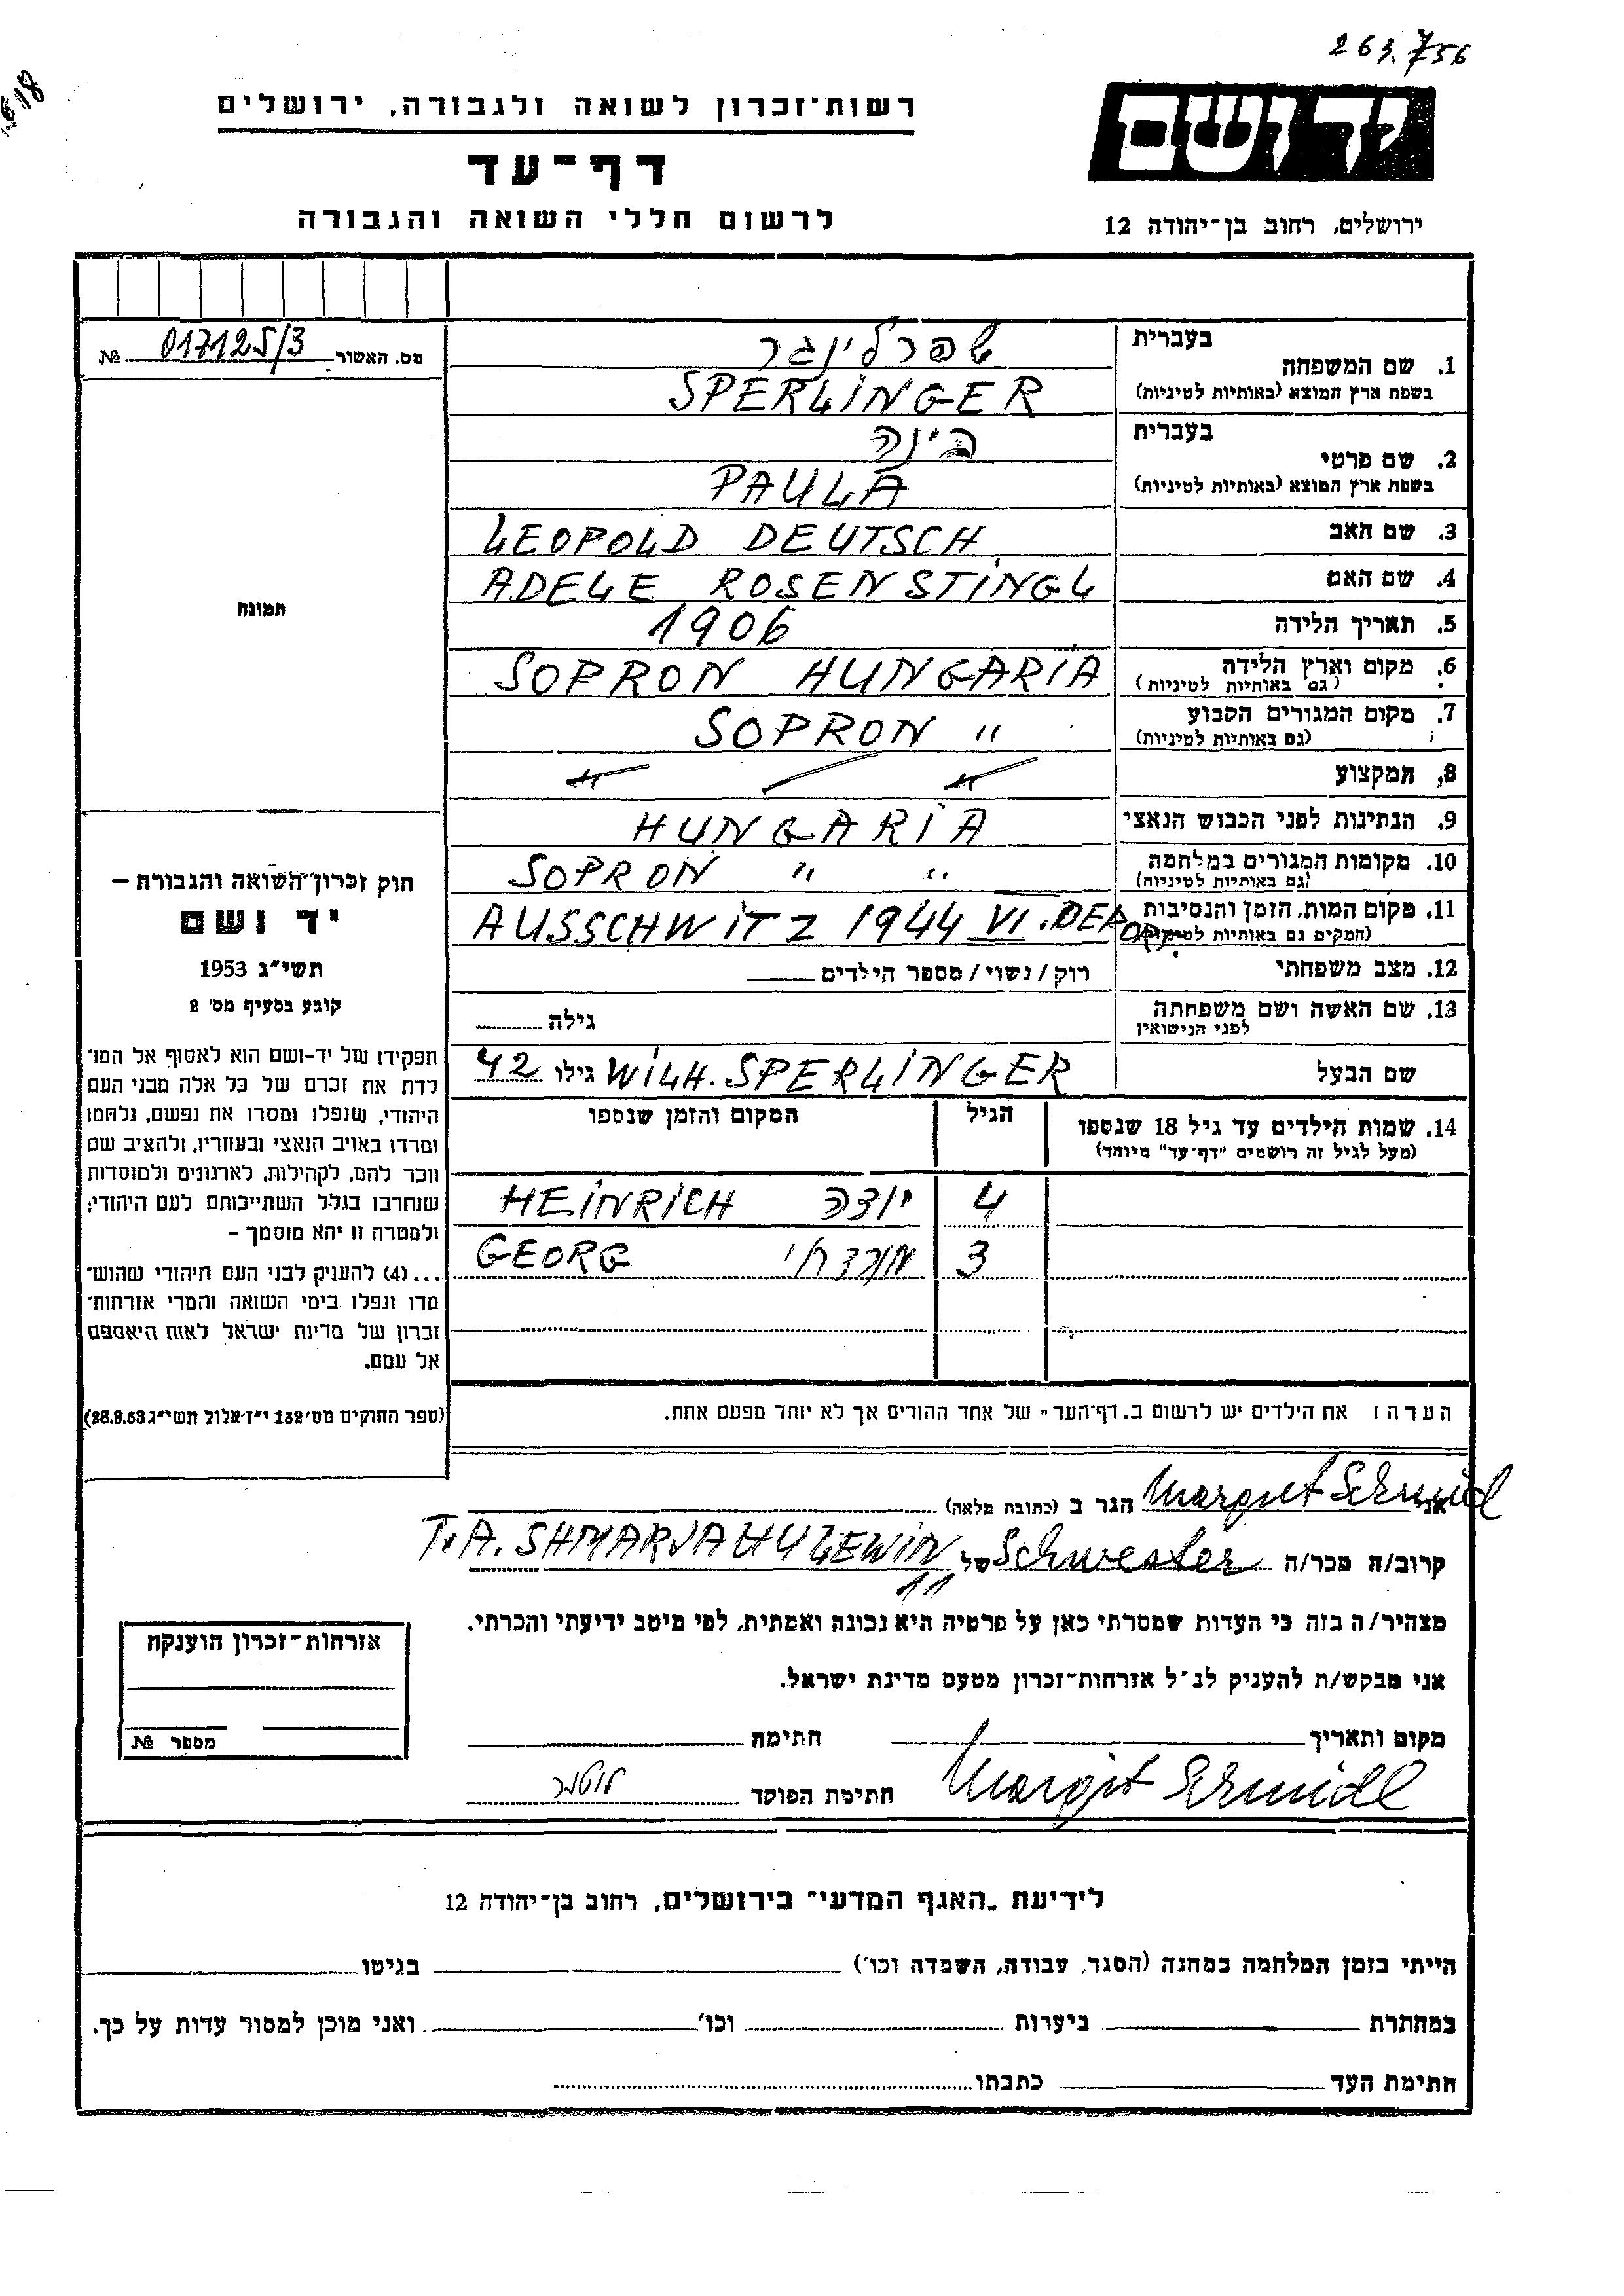 263.756
618
יד ושם
רשות־זכרון לשואה ולגבורה, ירושלים
דף־עד
לרשום חללי השואה והגבורה
ירושלים, רחוב בן־יהודה 12
מס. האשור 017125/3 №
בעברית
שפרלינגר
1. שם המשפחה
בשפת ארץ המוצא (באותיות לטיניות)
SPERLINGER
בעברית
בינה
2. שם פרטי
בשפת ארץ המוצא (באותיות לטיניות)
PAULA
3. שם האב LEOPOLD DEUTSCH
4. שם האם ADELE ROSENSTINGL
5. תאריך הלידה 1906
6. מקום וארץ הלידה
(גם באותיות לטיניות)
SOPRON HUNGARIA
7. מקום המגורים הקבוע
(גם באותיות לטיניות)
SOPRON "
8. המקצוע
9. הנתינות לפני הכבוש הנאצי HUNGARIA
10. מקומות המגורים במלחמה
(גם באותיות לטיניות)
SOPRON " "
11. מקום המות, הזמן והנסיבות
(המקום גם באותיות לטיניות)
AUSSCHWITZ 1944 VI. DEPORT.
12. מצב משפחתי רוק / נשוי / מספר הילדים
13. שם האשה ושם משפחתה
לפני הנישואין
גילה
שם הבעל WILH. SPERLINGER גילו 42
14. שמות הילדים עד גיל 18 שנספו
(מעל לגיל זה רושמים "דף־עד" מיוחד)
הגיל
המקום והזמן שנספו
4 יודה HEINRICH
3 מרדחי GEORG
הערה: את הילדים יש לרשום ב„דף־העד" של אחד ההורים אך לא יותר מפעם אחת.
תמונה
חוק זכרון השואה והגבורה –
יד ושם
תשי"ג 1953
קובע בסעיף מס' 2
תפקידו של יד-ושם הוא לאסוף אל המו־
לדת את זכרם של כל אלה מבני העם
היהודי, שנפלו ומסרו את נפשם, נלחמו
ומרדו באויב הנאצי ובעוזריו, ולהציב שם
וזכר להם, לקהילות, לארגונים ולמוסדות
שנחרבו בגלל השתייכותם לעם היהודי;
ולמטרה זו יהא מוסמך –
...(4) להעניק לבני העם היהודי שהוש־
מדו ונפלו בימי השואה והמרי אזרחות־
זכרון של מדינת ישראל לאות היאספם
אל עמם.
(ספר החוקים מס' 132 י"ז אלול תשי"ג 28.8.53)
אני Margit Schmidl הגר ב (כתובת מלאה)
קרוב/ה מכר/ה Schwester של T.A. SHMARJAHU LEWIN
11
מצהיר/ה בזה כי העדות שמסרתי כאן על פרטיה היא נכונה ואמתית, לפי מיטב ידיעתי והכרתי.
אני מבקש/ת להעניק לנ"ל אזרחות־זכרון מטעם מדינת ישראל.
מקום ותאריך חתימה
Margit Schmidl
חתימת הפוקד
אזרחות־זכרון הוענקה
מספר №
לידיעת „האגף המדעי" בירושלים, רחוב בן־יהודה 12
הייתי בזמן המלחמה במחנה (הסגר, עבודה, השמדה וכו') בגיטו
במחתרת ביערות וכו' ואני מוכן למסור עדות על כך.
חתימת העד כתבתו